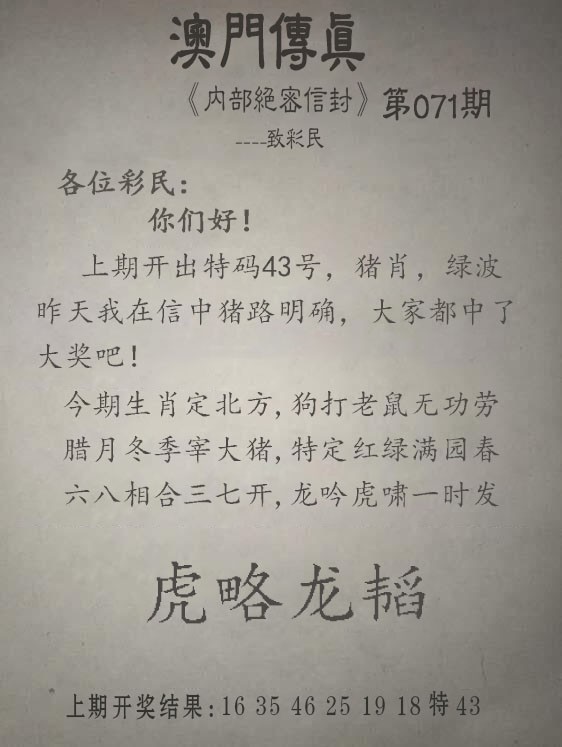 澳門傳真
《内部絕密信封》第071期
----致彩民
各位彩民：
你们好！
上期开出特码43号，猪肖，绿波
昨天我在信中猪路明确，大家都中了
大奖吧！
今期生肖定北方,狗打老鼠无功劳
腊月冬季宰大猪,特定红绿满园春
六八相合三七开,龙吟虎啸一时发
虎略龙韬
上期开奖结果:16 35 46 25 19 18特43